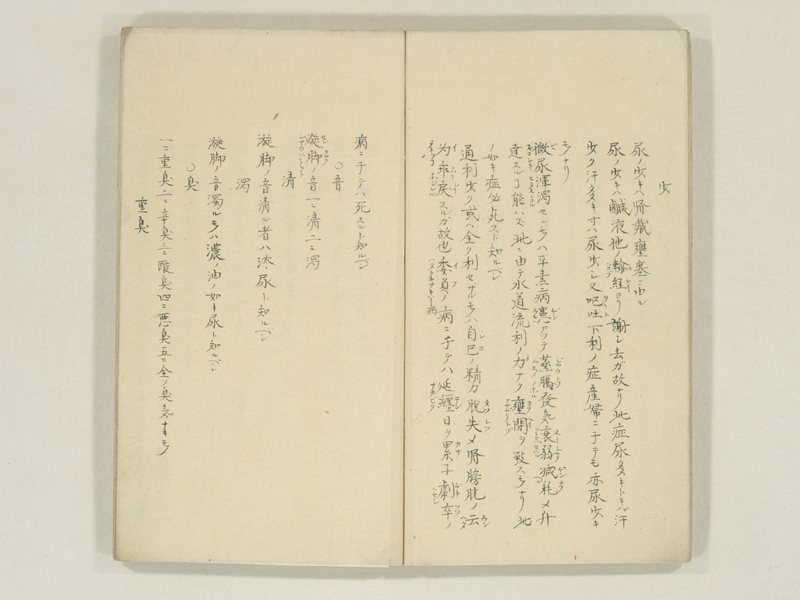 少
尿ノ少キハ腎藏壅塞ニ由ル
尿ノ少キハ鹹液他ノ輸経ヨリ謝シ去ガ故ナリ此症尿多キトキハ汗
少ク汗多キ寸ハ尿少シ又嘔吐下利ノ症産帯ニ于テモ亦尿少キ
モノナリ
微尿渾濁セルモノハ平素病アツテ蒸騰発気衰弱減耗メ升
達スルヿ能ハス此ニ由テ水道流利ノ力ナク壅閉ヲ致スモノナリ此
ノ如キ症必死スト知ルベシ
通利少ク或ハ全ク利セザルモノハ自己ノ精力脱失メ腎膀胱ノ云
為乖戻スルガ故也委負ノ病ニ于テハ延纏日ヲ累子劇卒ノ
病ニ于テハ死スルト知ルベシ
○音
漩脚ノ音一ニ清二ニ濁
清
漩脚ノ音清ル者ハ尿ト知ルベシ
濁
漩脚ノ音濁ルモノハ濃ノ油ノ如キ尿ト知ルベシ
○臭
一ニ重臭二ニ辛臭三ニ酸臭四ニ悪臭五ニ全ク臭気ナキモノ
重臭